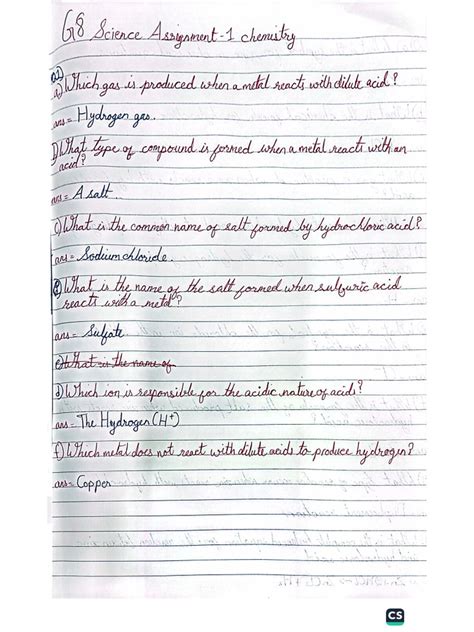 G8 Science Assignment-1 chemistry
Q1)
a) Which gas is produced when a metal reacts with dilute acid?
ans= Hydrogen gas.
b) What type of compound is formed when a metal reacts with an
acid?
ans= A salt.
c) What is the common name of salt formed by hydrochloric acid?
ans= Sodium chloride.
What is the name of the salt formed when sulfuric acid
reacts with a metal?
ans= Sulfate.
e) What is the name of
d) Which ion is responsible for the acidic nature of acids?
ans- The Hydrogen (H+)
f) Which metal does not react with dilute acids to produce hydrogen?
ans= Copper
CS